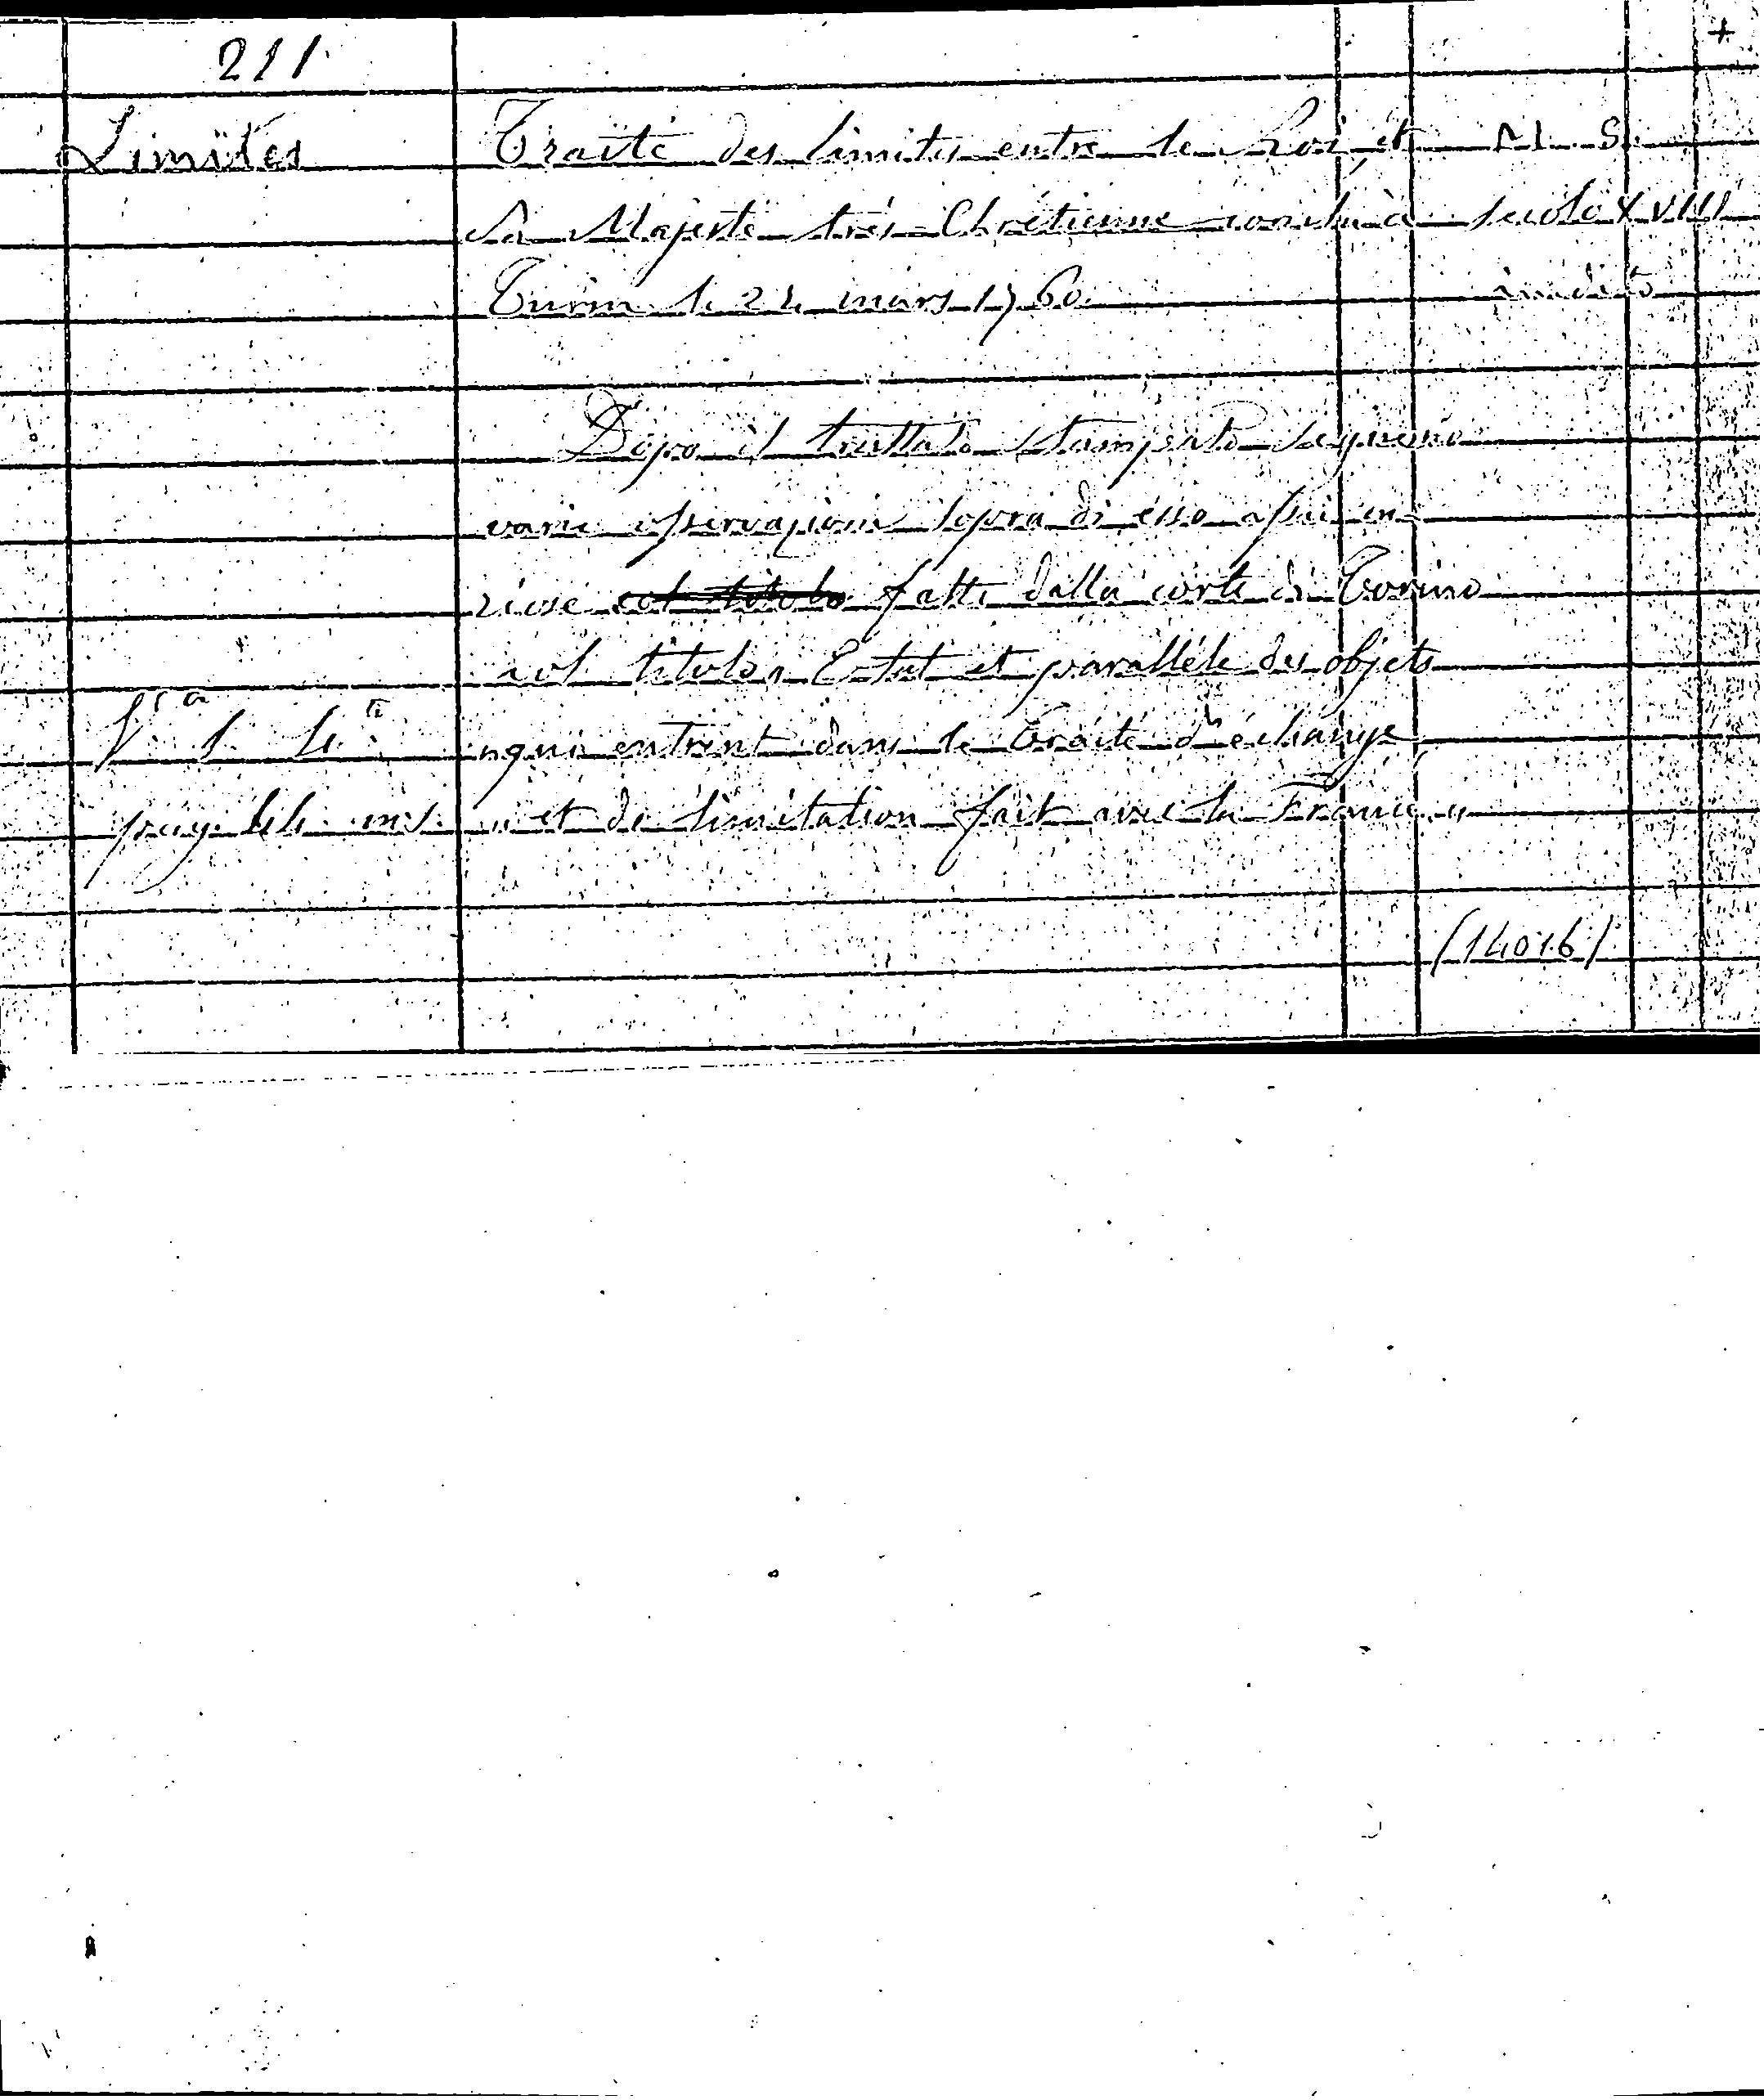 211
+
Limites
Traité des limites entre le Roi et
M. S.
Sa Majesté très-Chrétienne conclu à
secolo XVIII
Turin le 24 mars 1760
inedito
Dopo il trattato stampato seguono
varie osservazioni sopra di esso assai cu-
riose col titolo fatte dalla corte di Torino
col titolo " Estat et parallèle des objets
" qui entrent dans le Traité d'échange
" et de limitation fait avec la France "
mis.
(14016)